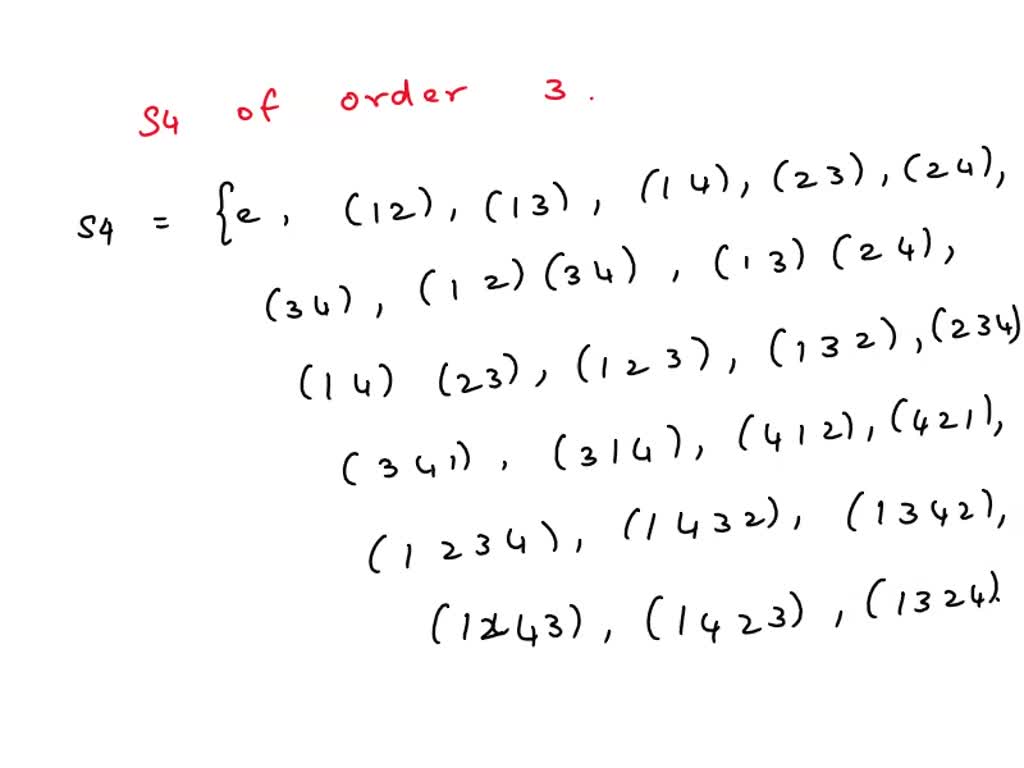 S4 of order 3.
S4 = {e, (12), (13), (14), (23), (24),
(34), (12)(34), (13)(24),
(14)(23), (123), (132), (234)
(341), (314), (412), (421),
(1234), (1432), (1342),
(1243), (1423), (1324).